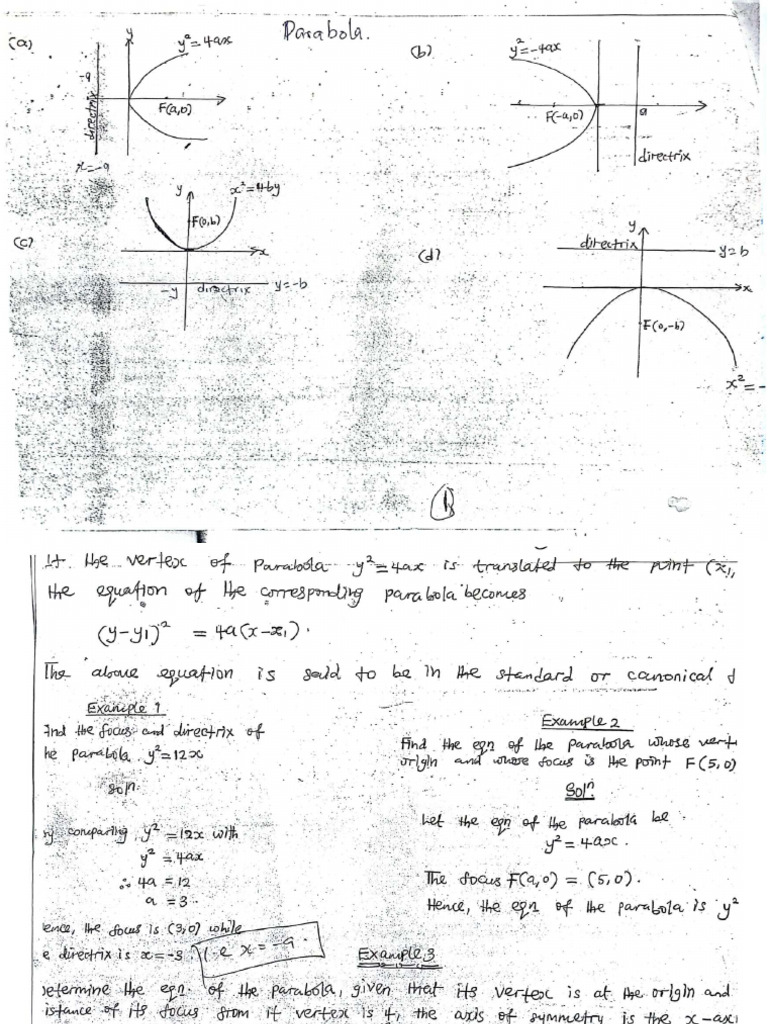 Parabola.
(a)
y
y² = 4ax
-a
F(a,0)
directrix
x = -a
(b)
y² = -4ax
F(-a,0)
a
directrix
(c)
y
x² = 4by
F(0,b)
x
-y
directrix
y = -b
(d)
y
directrix
y = b
x
F(0,-b)
x² = -
1
If the vertex of Parabola y² = 4ax is translated to the point (x₁,
the equation of the corresponding parabola becomes
(y-y₁)² = 4a(x-x₁).
The above equation is said to be in the standard or canonical f
Example 1
Find the focus and directrix of
he parabola y² = 12x
soln.
By comparing y² = 12x with
y² = 4ax
∴ 4a = 12
a = 3.
ence, the focus is (3,0) while
e directrix is x = -3
i.e x = -a.
Example 2
Find the eqn of the parabola whose vert
origin and whose focus is the point F(5,0)
Soln.
Let the eqn of the parabola be
y² = 4ax.
The focus F(a,0) = (5,0).
Hence, the eqn of the parabola is y²
Example 3
Determine the eqn. of the parabola, given that its vertex is at the origin and
istance of its focus from it vertex is 4, the axis of symmetry is the x-axi